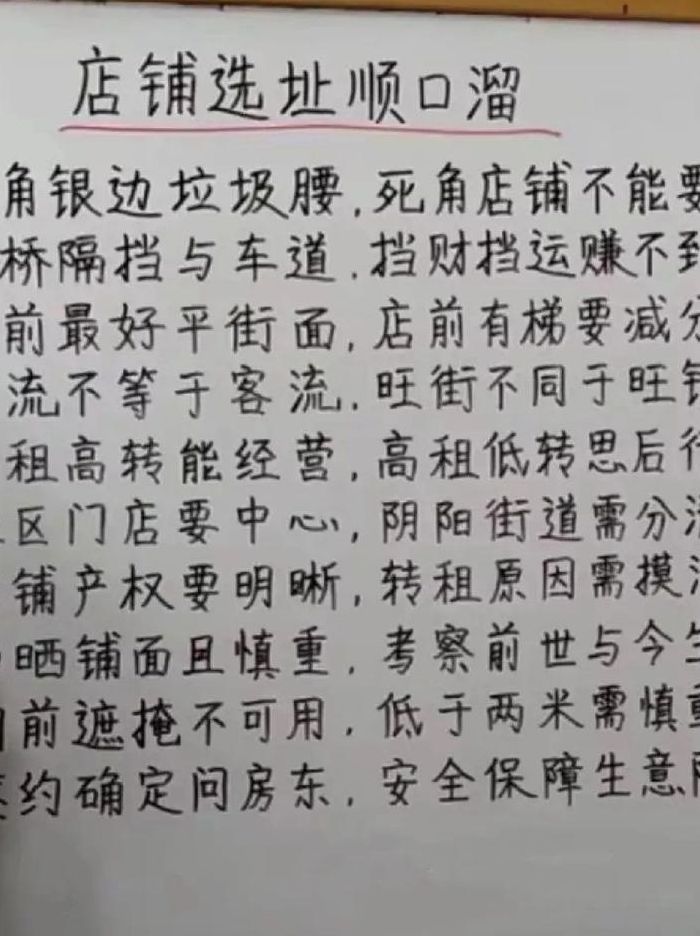 店铺选址顺口溜
角银边垃圾腰,死角店铺不能要
桥隔挡与车道,挡财挡运赚不到
前最好平街面,店前有梯要减分
流不等于客流,旺街不同于旺铺
租高转能经营,高租低转思后行
区门店要中心,阴阳街道需分
铺产权要明晰,转租原因需摸
晒铺面且慎重,考察前世与今生
前遮掩不可用,低于两米需慎重
约确定问房东,安全保障生意